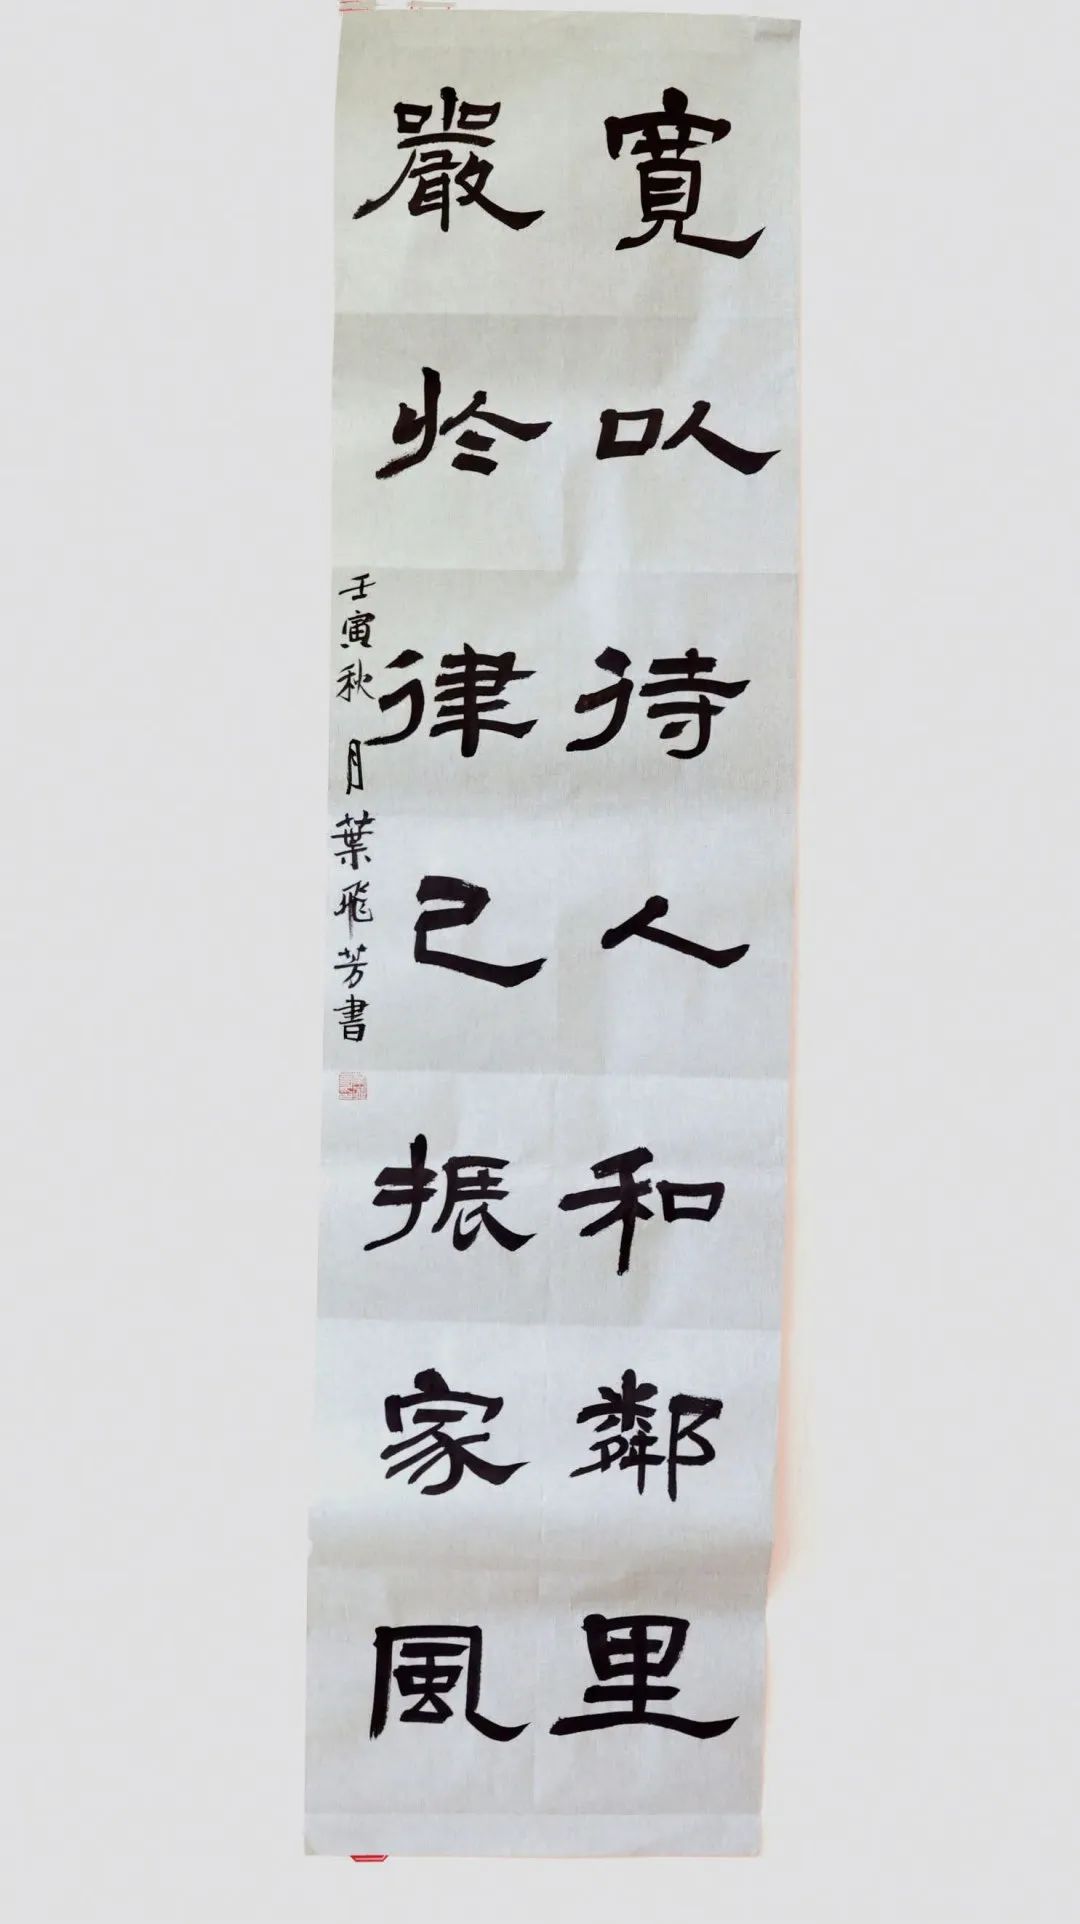 寬以待人和鄰里
嚴於律己振家風
壬寅秋月葉飛芳書